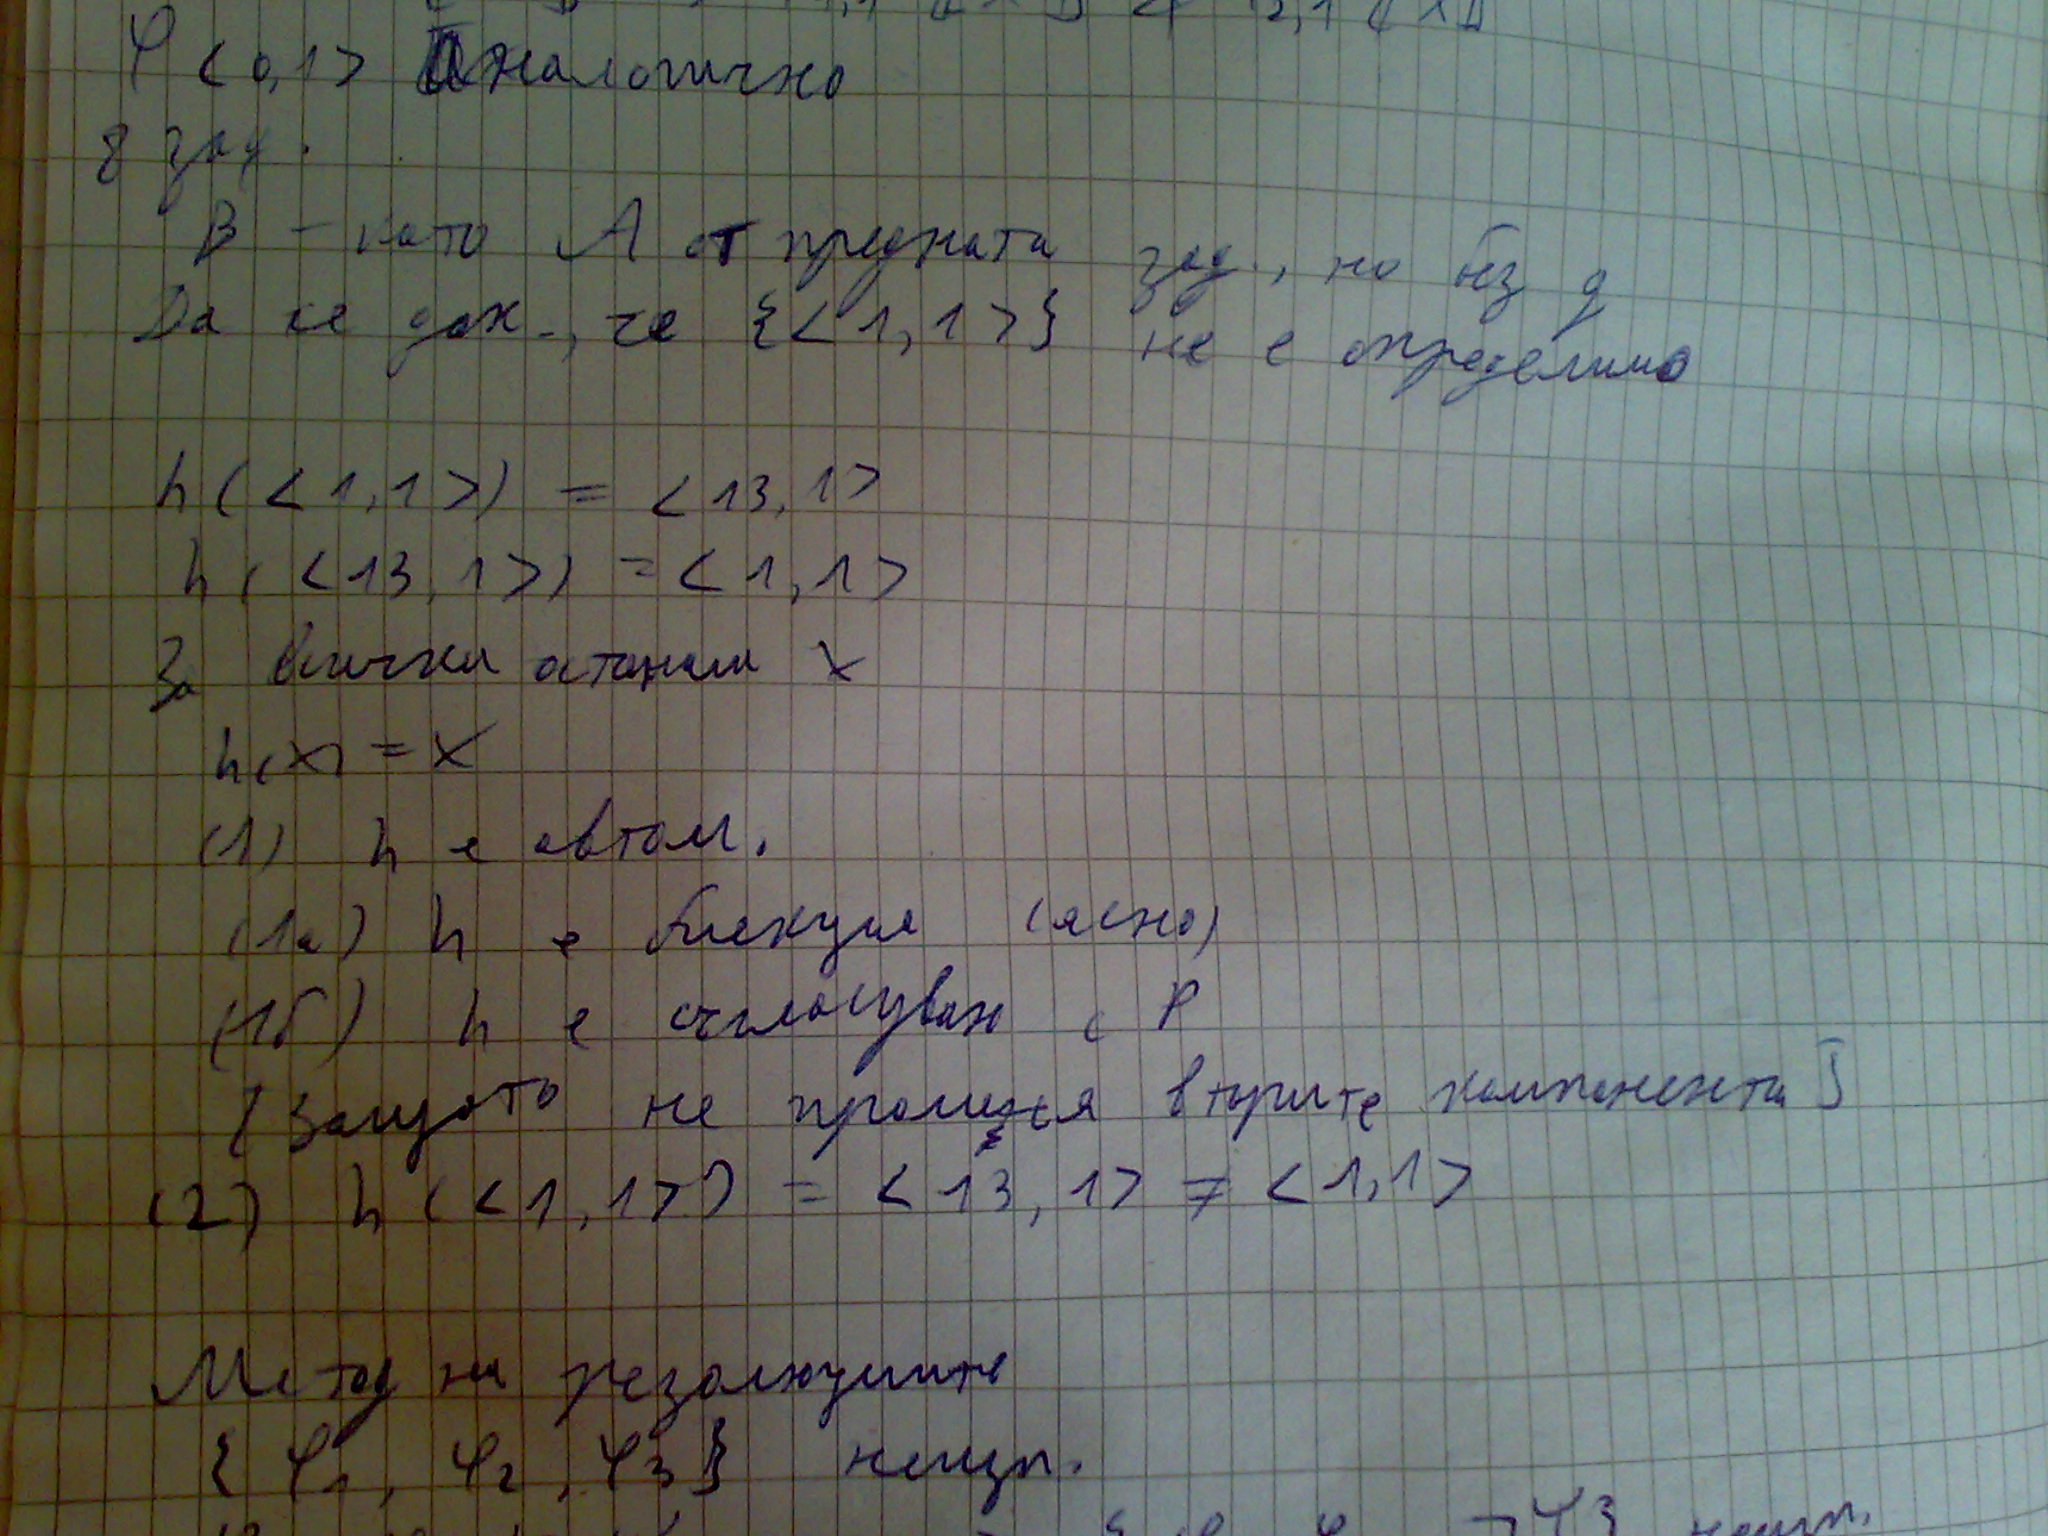 φ <0,1> Аналогично
8 зад.
B – като A от предната зад., но без q
Да се док., че {<1,1>} не е определимо
h(<1,1>) = <13,1>
h(<13,1>) = <1,1>
За всички останали x
h(x) = x
(1) h е автом.
(1а) h е биекция (ясно)
(1б) h е съгласуван с P
[Защото не променя вторите компоненти]
(2) h(<1,1>) = <13,1> ≠ <1,1>
Метод на резолюциите
{φ1, φ2, φ3} неизп.